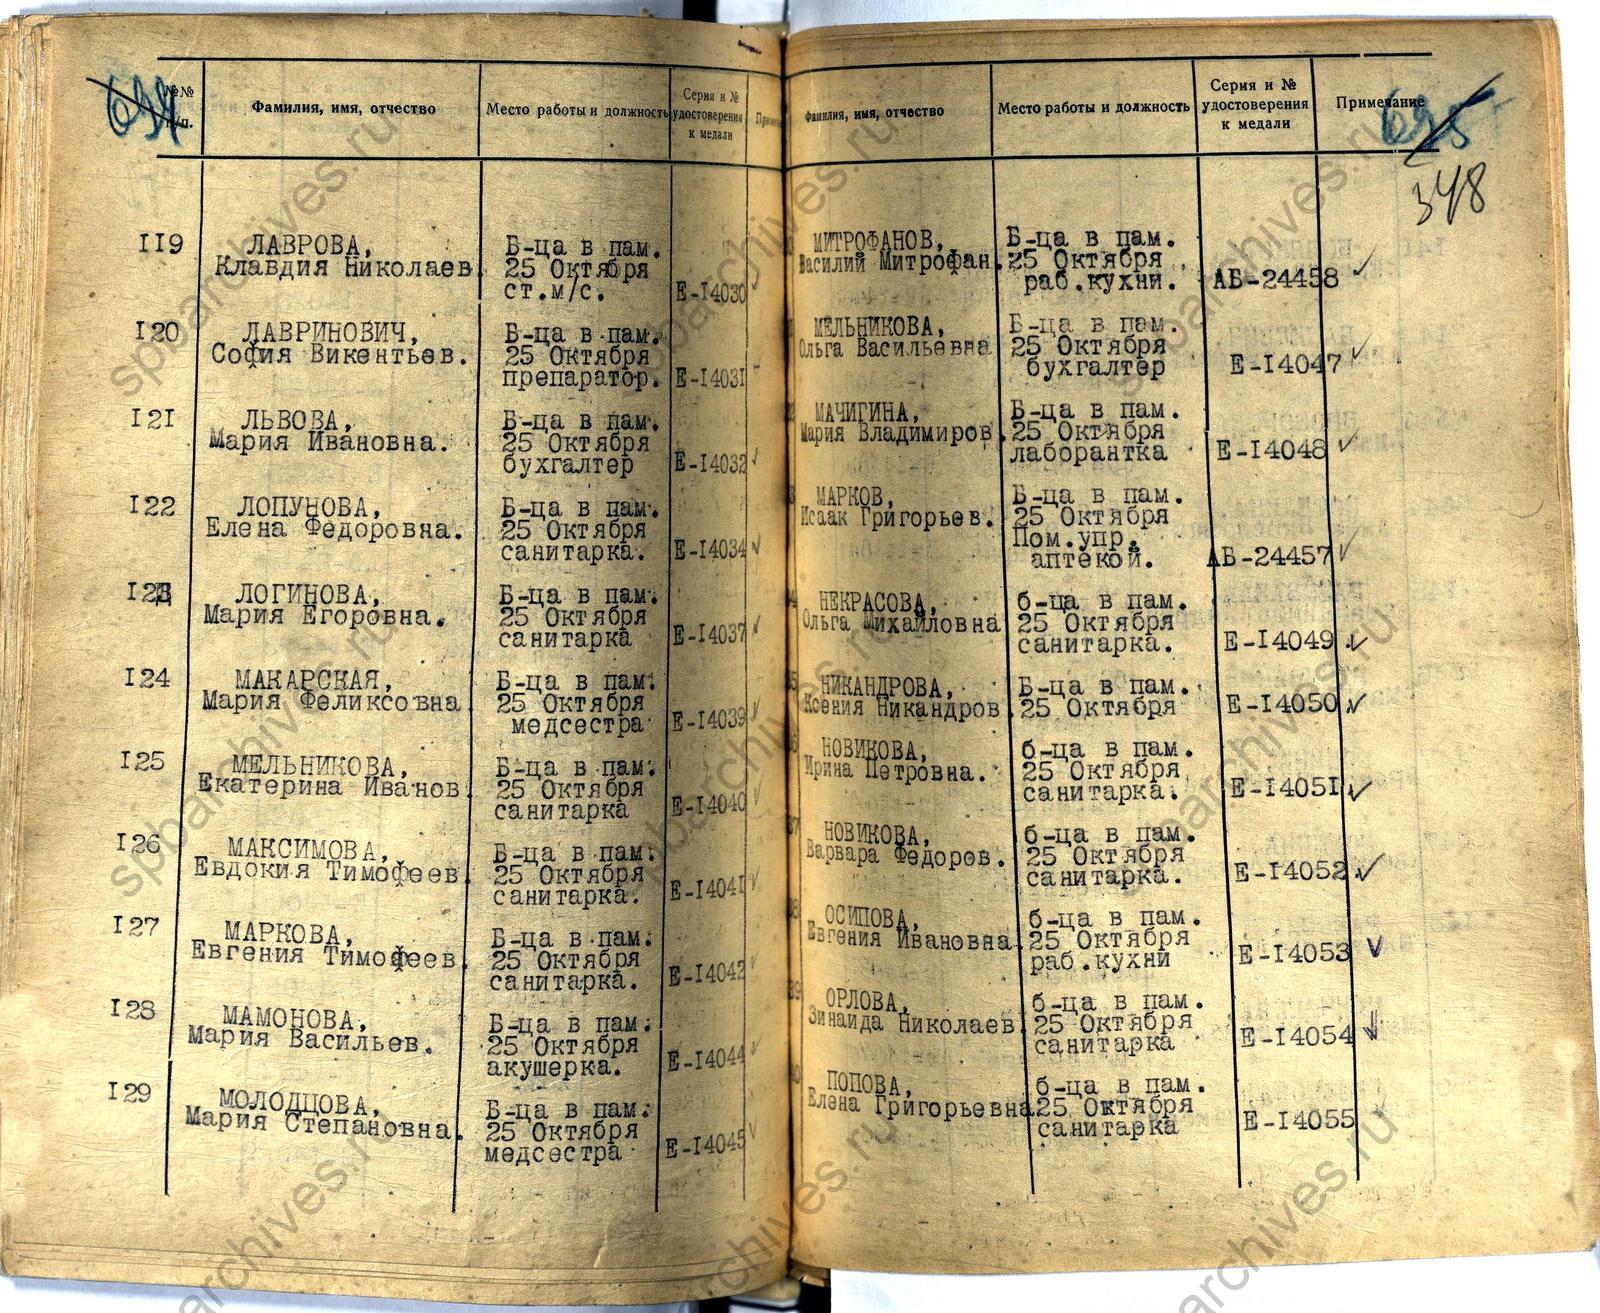 №№
п/п.
Фамилия, имя, отчество
Место работы и должность
Серия и №
удостоверения
к медали
634
119
ЛАВРОВА,
Клавдия Николаев.
Б-ца в пам.
25 Октября
ст.м/с.
Е-14030
120
ЛАВРИНОВИЧ,
София Викентьев.
Б-ца в пам.
25 Октября
препаратор.
Е-14031
121
ЛЬВОВА,
Мария Ивановна.
Б-ца в пам.
25 Октября
бухгалтер
Е-14032
122
ЛОПУНОВА,
Елена Федоровна.
Б-ца в пам.
25 Октября
санитарка.
Е-14034
123
ЛОГИНОВА,
Мария Егоровна.
Б-ца в пам.
25 Октября
санитарка
Е-14037
124
МАКАРСКАЯ,
Мария Феликсовна
Б-ца в пам.
25 Октября
медсестра
Е-14039
125
МЕЛЬНИКОВА,
Екатерина Иванов.
Б-ца в пам.
25 Октября
санитарка
Е-14040
126
МАКСИМОВА,
Евдокия Тимофеев.
Б-ца в пам.
25 Октября
санитарка.
Е-14041
127
МАРКОВА,
Евгения Тимофеев.
Б-ца в пам.
25 Октября
санитарка.
Е-14042
128
МАМОНОВА,
Мария Васильев.
Б-ца в пам.
25 Октября
акушерка.
Е-14044
129
МОЛОДЦОВА,
Мария Степановна.
Б-ца в пам.
25 Октября
медсестра
Е-14045
Фамилия, имя, отчество
Место работы и должность
Серия и №
удостоверения
к медали
Примечание
348
МИТРОФАНОВ,
Василий Митрофан.
Б-ца в пам.
25 Октября
раб.кухни.
АБ-24458
МЕЛЬНИКОВА,
Ольга Васильевна
Б-ца в пам.
25 Октября
бухгалтер
Е-14047
МАЧИГИНА,
Мария Владимиров.
Б-ца в пам.
25 Октября
лаборантка
Е-14048
МАРКОВ,
Исаак Григорьев.
Б-ца в пам.
25 Октября
Пом.упр.
аптекой.
АБ-24457
НЕКРАСОВА,
Ольга Михайловна
б-ца в пам.
25 Октября
санитарка.
Е-14049.
НИКАНДРОВА,
Ксения Никандров.
Б-ца в пам.
25 Октября
Е-14050.
НОВИКОВА,
Ирина Петровна.
б-ца в пам.
25 Октября
санитарка.
Е-14051.
НОВИКОВА,
Варвара Федоров.
б-ца в пам.
25 Октября
санитарка.
Е-14052.
ОСИПОВА,
Евгения Ивановна.
б-ца в пам.
25 Октября
раб.кухни
Е-14053
ОРЛОВА,
Зинаида Николаев.
б-ца в пам.
25 Октября
санитарка
Е-14054
ПОПОВА,
Елена Григорьевна
б-ца в пам.
25 Октября
санитарка
Е-14055
spbarchives.ru